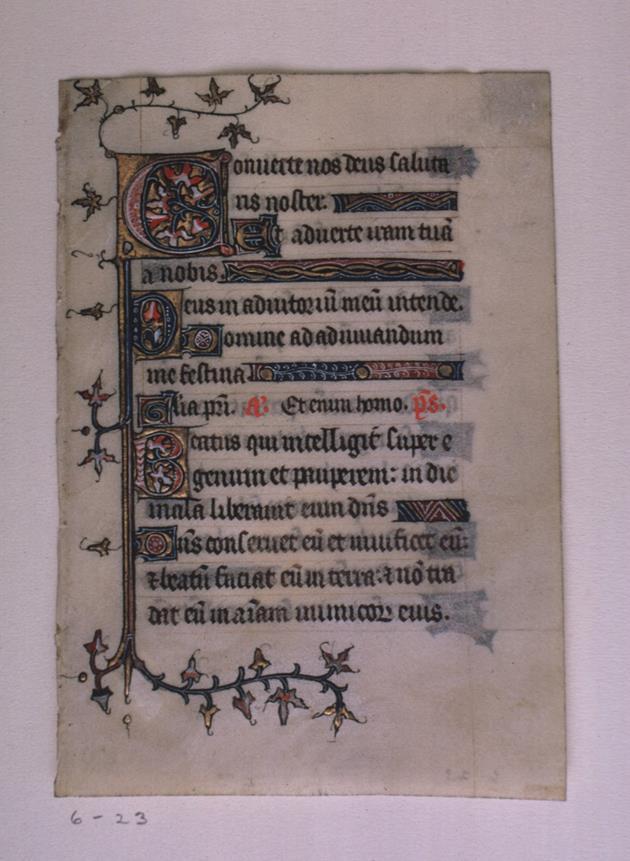 Conuerte nos deus saluta
ris noster.
Et aduerte iram tuā
a nobis.
Deus in adiutoriū meū intende.
Domine ad adiuuandum
me festina
Gl̄ia pr̄i. A. Et enim homo. p̄s.
Beatus qui intelligit super e
genum et pauperem: in die
mala liberauit eum dn̄s
Dn̄s conseruet eū et uiuificet eū:
⁊ beatū faciat eū in terra: ⁊ nō tra
dat eū in aīam inimicoꝝ eius.
6 - 23